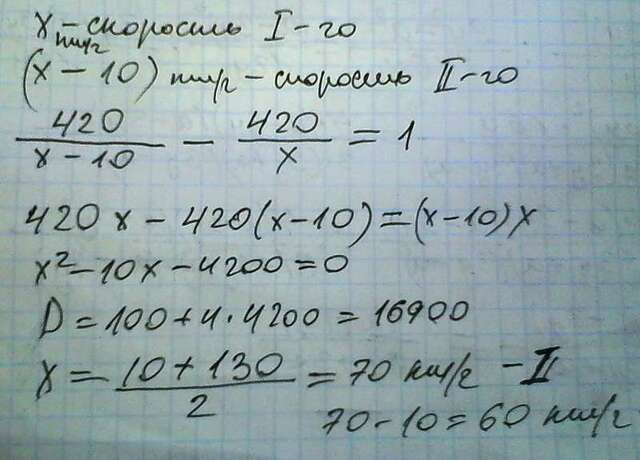 x км/г - скорость I-го
(x - 10) км/г - скорость II-го
420/(x - 10) - 420/x = 1
420x - 420(x-10) = (x-10)x
x² - 10x - 4200 = 0
D = 100 + 4·4200 = 16900
x = (10 + 130)/2 = 70 км/г - II
70 - 10 = 60 км/г